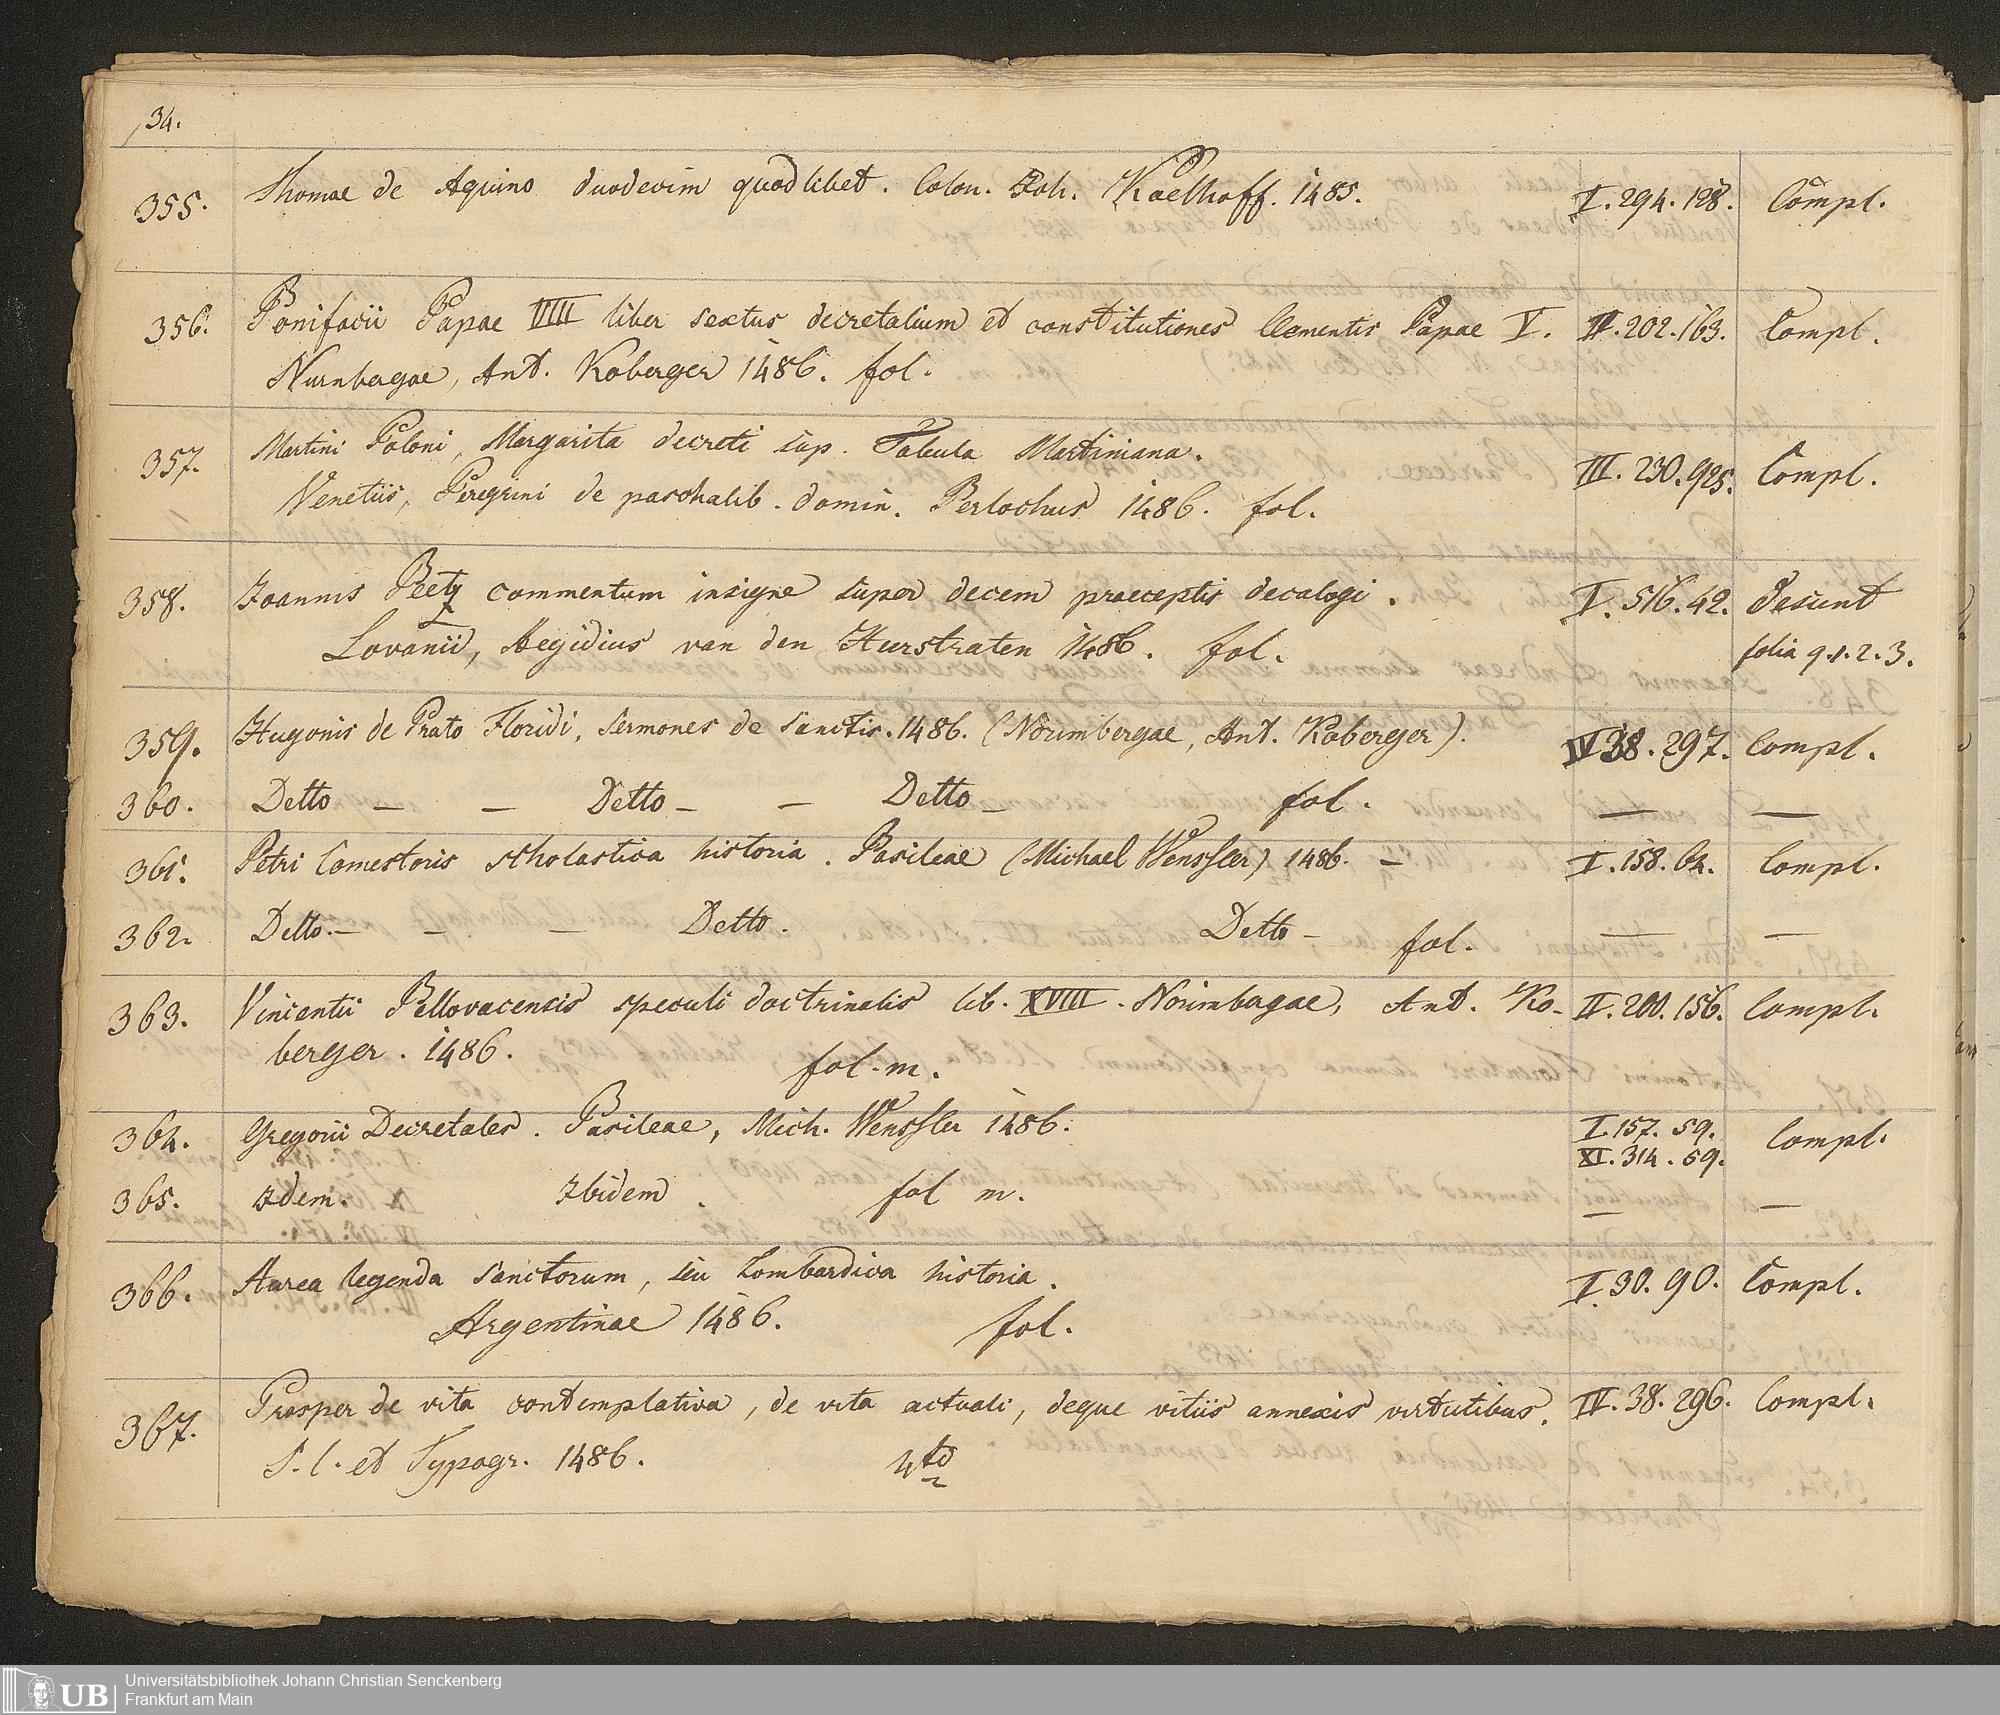 34.
355. Thomae de Aquino duodecim quodlibet. Colon. Joh. Koelhoff. 1485. I. 294. 128. Compl.
356. Bonifacii Papae VIIII liber sextus decretalium et constitutiones Clementis Papae V. II. 202. 163. Compl.
Nurnbergae, Ant. Koberger 1486. fol.
357. Martini Poloni, Margarita decreti sup. Tabula Martiniana. III. 230. 925. Compl.
Venetiis, Peregrini de paschalib. domin. Berlochus 1486. fol.
358. Joannis Beetz commentum insigne super decem praeceptis decalogi. I. 516. 42. Desunt
Lovanii, Aegidius van den Heerstraten 1486. fol. folia 9.1.2.3.
359. Hugonis de Prato Floridi, sermones de sanctis. 1486. (Norimbergae, Ant. Koberger). IV. 38. 297. Compl.
360. Detto — — Detto — — Detto — fol. — —
361. Petri Comestoris scholastica historia. Basileae (Michael Wenssler) 1486. — I. 158. 64. Compl.
362. Detto. — — — Detto. Detto — fol. — —
363. Vincentii Bellovacensis speculi doctrinalis lib. XVIII. Norimbagae, Ant. Ko- II. 200. 156. Compl.
berger. 1486. fol. m.
364. Gregorii Decretales. Basileae, Mich. Wenssler 1486. I. 157. 59. Compl.
XI. 314. 59.
365. Idem. Ibidem. fol m. — —
366. Aurea legenda sanctorum, seu Lombardica historia. I. 30. 90. Compl.
Argentinae 1486. fol.
367. Prosper de vita contemplativa, de vita actuali, deque vitiis annexis virtutibus. IV. 38. 296. Compl.
S. l. et Typogr. 1486. 4to
UB Universitätsbibliothek Johann Christian Senckenberg
Frankfurt am Main